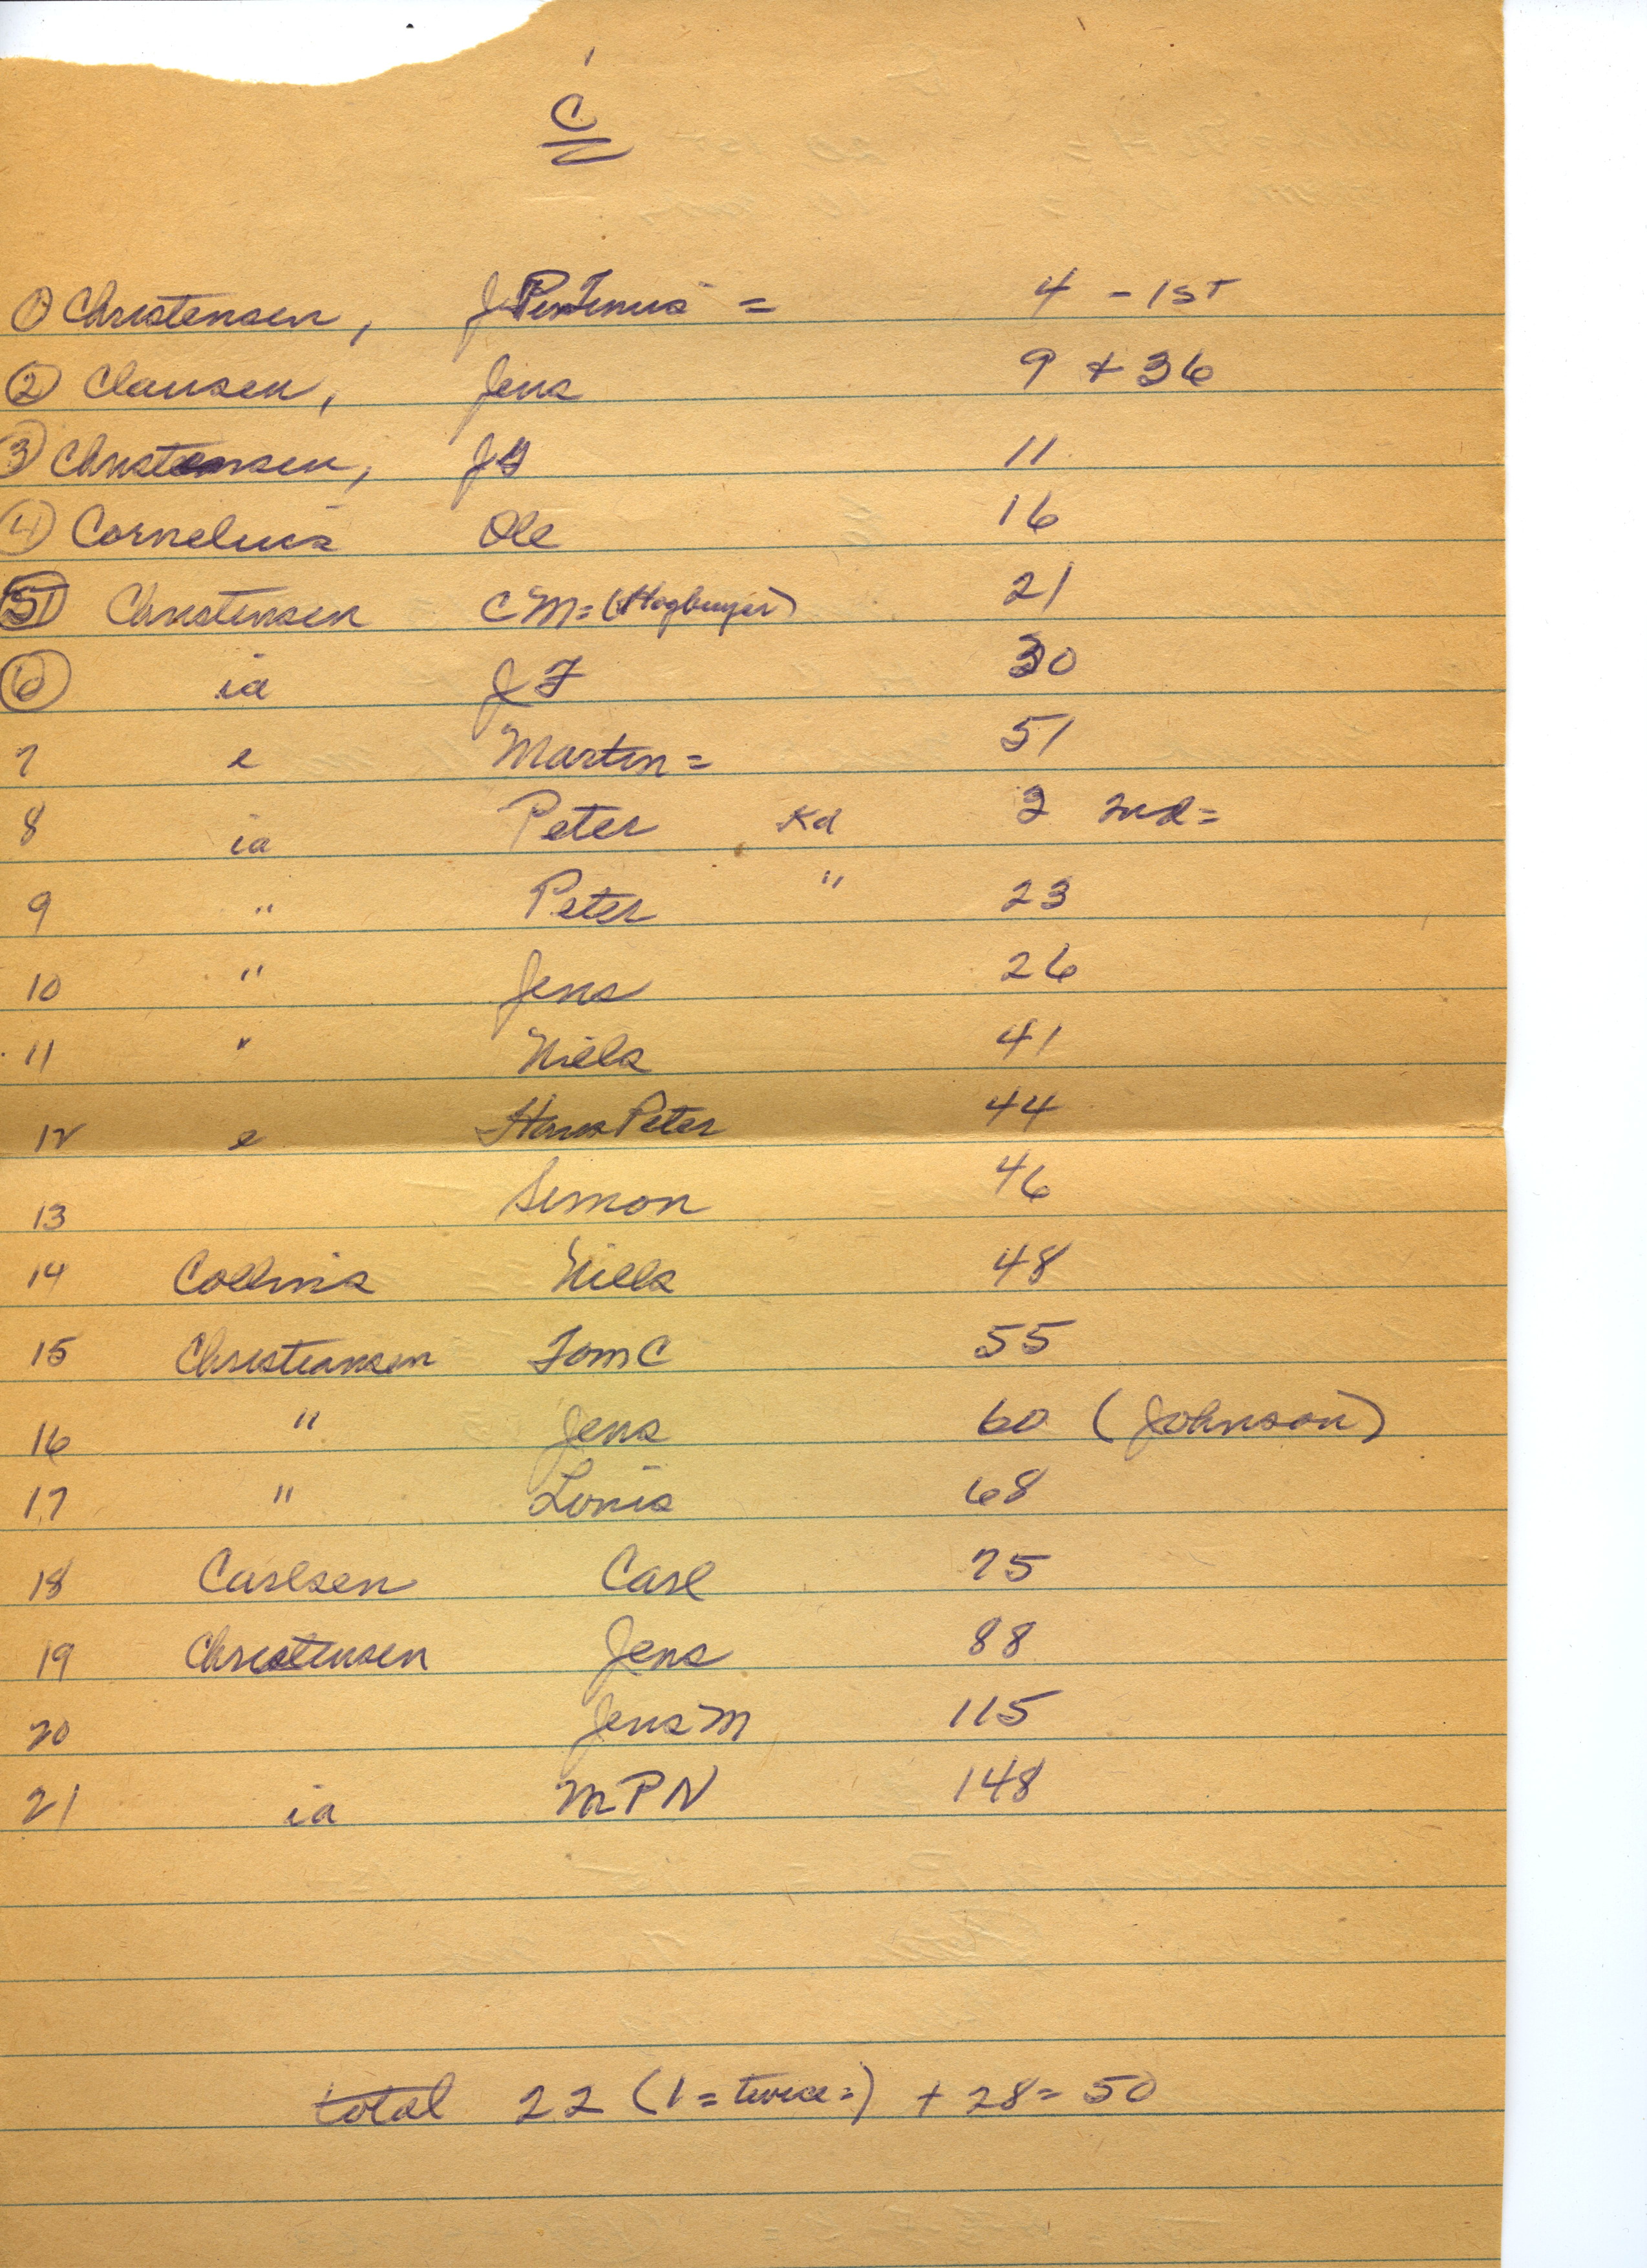 C
① Christensen, J =  4 - 1ST
② Clausen, Jens 9 + 36
③ Christensen, 11
④ Cornelius Ole 16
⑤ Christensen CM = (Hogbuyer) 21
⑥ ia JF 30
7 e Martin = 51
8 ia Peter Kd 2 2nd =
9 " Peter " 23
10 " Jens 26
11 " Niels 41
12 e Hans Peter 44
13 Simon 46
14 Collins Niels 48
15 Christiansen Tom C 55
16 " Jens 60 (Johnson)
17 " Louis 68
18 Carlsen Carl 75
19 Christensen Jens 88
20 Jens M 115
21 ia MPN 148
total 22 (1 = twice =) + 28 = 50